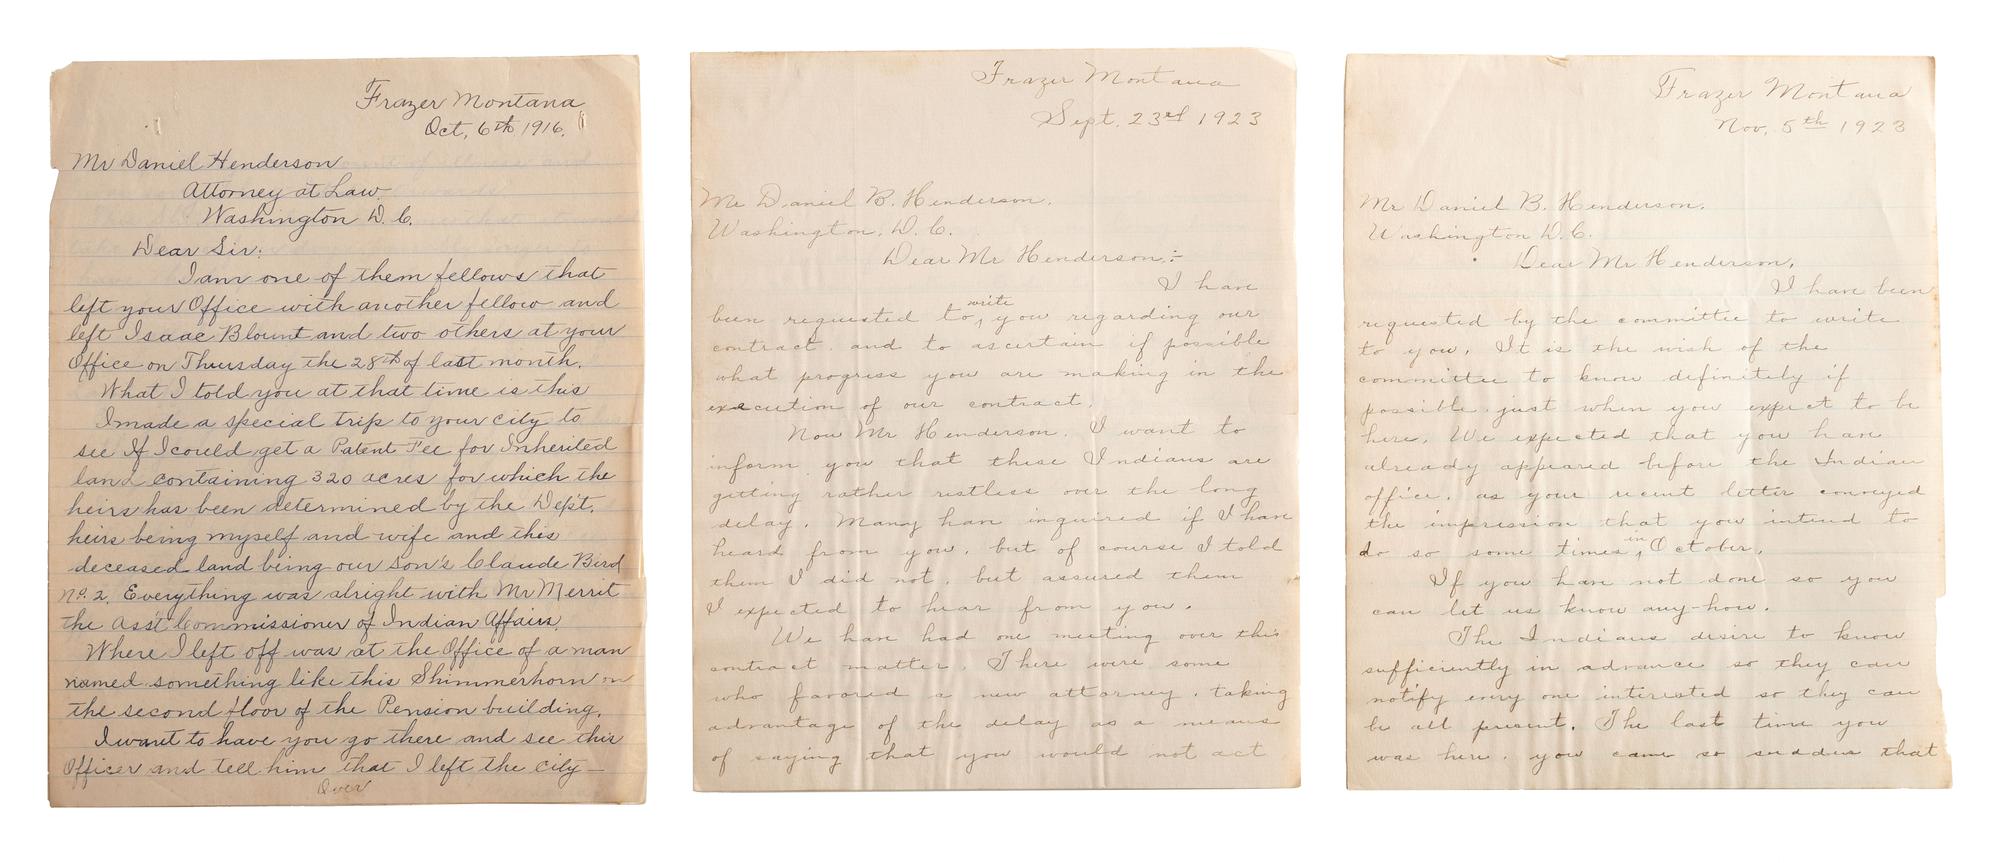 Frazer Montana
Oct, 6th 1916.
Mr Daniel Henderson
Attorney at Law
Washington D. C.
Dear Sir:
I am one of them fellows that
left your Office with another fellow and
left Isaac Blount and two others at your
Office on Thursday the 28th of last month.
What I told you at that time is this
I made a special trip to your city to
see If I could get a Patent Fee for Inherited
land containing 320 acres for which the
heirs has been determined by the Dep't.
heirs being myself and wife and this
deceased land being our son's Claude Bird
No. 2. Everything was alright with Mr Merrit
the Ass't Commissioner of Indian Affairs.
Where I left off was at the Office of a man
named something like this Shimmerhorn on
the second floor of the Pension building.
I want to have you go there and see this
Officer and tell him that I left the city—
Over
Frazer Montana
Sept. 23rd 1923
Mr Daniel B. Henderson.
Washington, D. C.
Dear Mr Henderson:-
I have
been requested to write you regarding our
contract. and to ascertain if possible
what progress you are making in the
execution of our contract.
Now Mr Henderson. I want to
inform you that these Indians are
getting rather restless over the long
delay. Many have inquired if I have
heard from you. but of course I told
them I did not, but assured them
I expected to hear from you.
We have had one meeting over this
contract matter. There were some
who favored a new attorney. taking
advantage of the delay as a means
of saying that you would not act
Frazer Montana
Nov. 5th 1923
Mr Daniel B. Henderson.
Washington D. C.
Dear Mr Henderson,
I have been
requested by the committee to write
to you. It is the wish of the
committee to know definitely if
possible just when you expect to be
here. We expected that you have
already appeared before the Indian
office. as your recent letter conveyed
the impression that you intend to
do so some times in October.
If you have not done so you
can let us know any-how.
The Indians desire to know
sufficiently in advance so they can
notify every one interested so they can
be all present. The last time you
was here. you came so sudden that